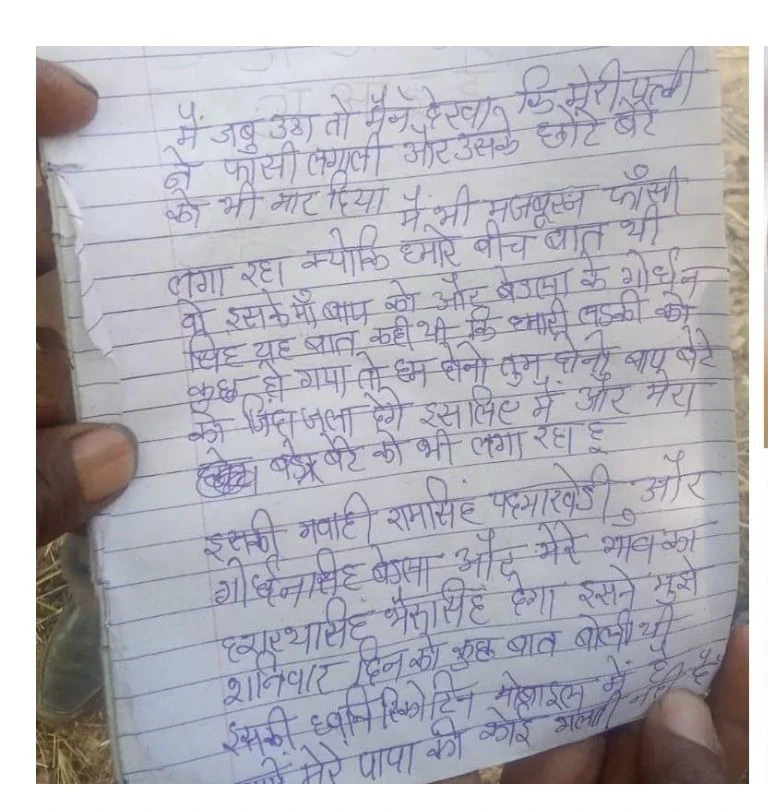 मैं जब उठा तो मैंने देखा कि मेरी पत्नी
ने फांसी लगाली और उसके छोटे बेटे
को भी मार दिया
मैं भी मजबूरन फाँसी
लगा रहा क्योकि हमारे बीच बात थी
इसके माँ बाप को और बेडला के गोर्धन
सिंह यह बात कही थी कि हमारी लडकी को
कुछ हो गया तो हम दोनो तुम दोनो बाप बेटे
को जिंदा जला देंगे इसलिए मैं और मेरा
बडे बेटे को भी लगा रहा हू
इसकी गवाही रामसिंह पदमाखेडी और
गोर्धनसिंह बेडला और मेरे गाव का
भैरूसिंह देगा इसने मुझे
शनिवार दिन को कुछ बात बोली थी
इसकी ध्वनि मोबाइल में है
मेरे पापा की कोई गलती नही है